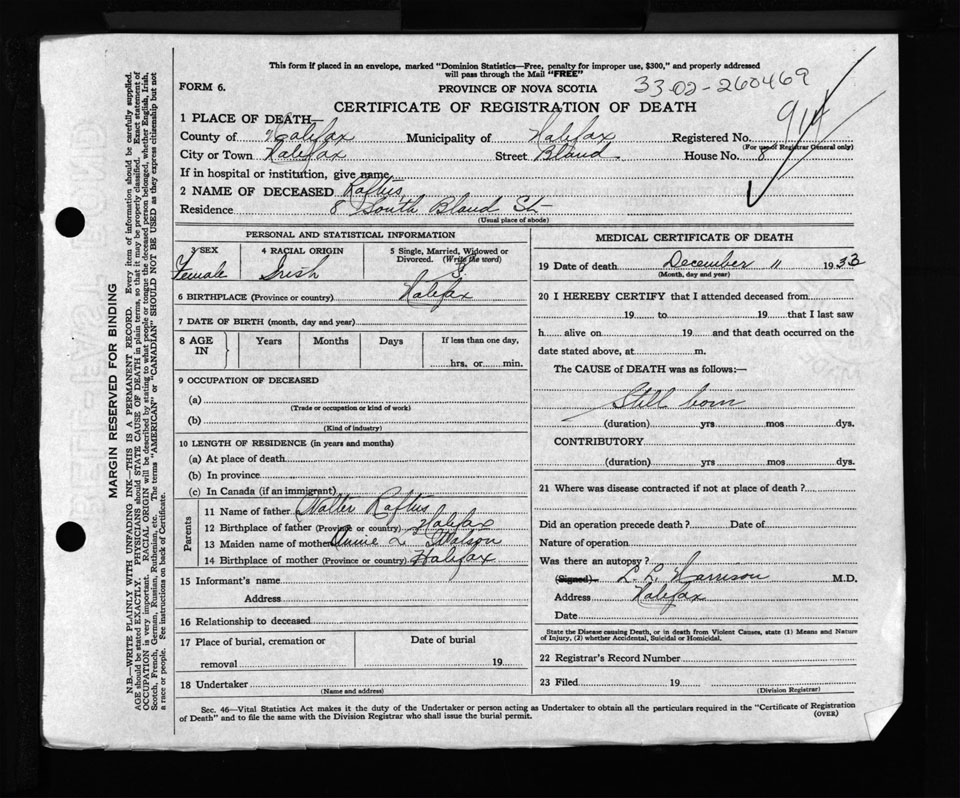 This form if placed in an envelope, marked "Dominion Statistics—Free, penalty for improper use, $300," and properly addressed
will pass through the Mail "FREE"
33-02-260469
FORM 6.
PROVINCE OF NOVA SCOTIA
CERTIFICATE OF REGISTRATION OF DEATH
1 PLACE OF DEATH—
County of Halifax Municipality of Halifax Registered No. 914
(For use of Registrar General only)
City or Town Halifax Street Bland House No. 8
If in hospital or institution, give name
2 NAME OF DECEASED Raftus
Residence 8 South Bland St-
(Usual place of abode)
PERSONAL AND STATISTICAL INFORMATION
3 SEX 4 RACIAL ORIGIN 5 Single, Married, Widowed or
Divorced. (Write the word)
Female Irish S.
6 BIRTHPLACE (Province or country) Halifax
7 DATE OF BIRTH (month, day and year)
8 AGE IN Years Months Days If less than one day,
hrs. or min.
9 OCCUPATION OF DECEASED
(a)
(Trade or occupation or kind of work)
(b)
(Kind of industry)
10 LENGTH OF RESIDENCE (in years and months)
(a) At place of death
(b) In province
(c) In Canada (if an immigrant)
Parents
11 Name of father Walter Raftus
12 Birthplace of father (Province or country) Halifax
13 Maiden name of mother Annie L Watson
14 Birthplace of mother (Province or country) Halifax
15 Informant's name
Address
16 Relationship to deceased
17 Place of burial, cremation or Date of burial
removal 19
18 Undertaker
(Name and address)
MEDICAL CERTIFICATE OF DEATH
19 Date of death December 11 1933
(Month, day and year)
20 I HEREBY CERTIFY that I attended deceased from
19 to 19 that I last saw
h alive on 19 and that death occurred on the
date stated above, at m.
The CAUSE of DEATH was as follows:—
Still born
(duration) yrs mos dys.
CONTRIBUTORY
(duration) yrs. mos. dys.
21 Where was disease contracted if not at place of death?
Did an operation precede death? Date of
Nature of operation
Was there an autopsy?
(Signed) L. L. Harrison M.D.
Address Halifax
Date
State the Disease causing Death, or in death from Violent Causes, state (1) Means and Nature
of Injury, (2) whether Accidental, Suicidal or Homicidal.
22 Registrar's Record Number
23 Filed 19
(Division Registrar)
Sec. 46—Vital Statistics Act makes it the duty of the Undertaker or person acting as Undertaker to obtain all the particulars required in the "Certificate of Registration
of Death" and to file the same with the Division Registrar who shall issue the burial permit.
(OVER)
MARGIN RESERVED FOR BINDING
N.B.—WRITE PLAINLY WITH UNFADING INK—THIS IS A PERMANENT RECORD. Every item of information should be carefully supplied.
AGE should be stated EXACTLY. PHYSICIANS should STATE CAUSE OF DEATH in plain terms, so that it may be properly classified. Exact statement of
OCCUPATION is very important. RACIAL ORIGIN will be described by stating to what people or tongue the deceased person belonged, whether English, Irish,
Scotch, French, German, Russian, Ruthenian, etc. The terms "AMERICAN" or "CANADIAN" SHOULD NOT BE USED as they express citizenship but not
a race or people. See instructions on back of Certificate.